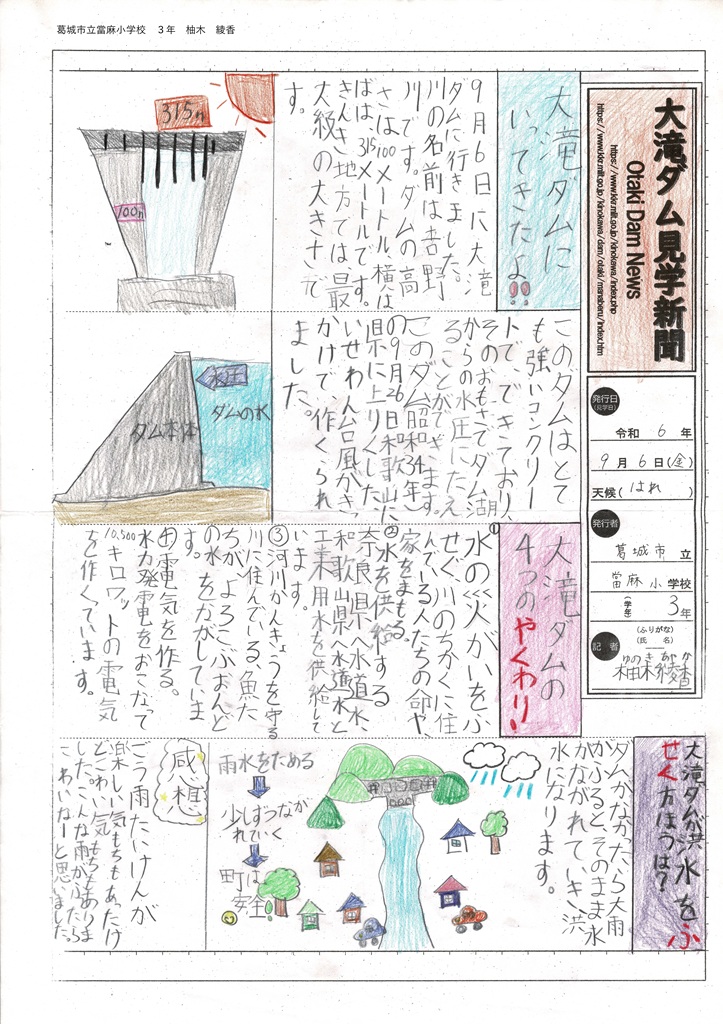 葛城市立當麻小学校　３年　柚木　綾香
大滝ダム見学新聞
Otaki Dam News
https://www.kkr.mlit.go.jp/kinokawa/index.php
https://www.kkr.mlit.go.jp/kinokawa/dam/otaki/manaberu/index.htm
発行日
(見学日)
令和 6 年
9月6日(金)
天候(はれ)
発行者
葛城市 立
當麻小学校
(学年) 3年
記者
(ふりがな)
(氏名)
ゆのきあやか
柚木綾香
大滝ダムに
いってきたよ!!
9月6日に大滝
ダムに行きました。
川の名前は吉野
川です。ダムの高
さは、100メートル、横は
ばは、315メートルです。
きんき地方では最
大級の大きさで
す。
315m
100m
このダムはとて
も強いコンクリー
トで、できており、
そのおもさでダム湖
からの水圧にたえ
ることができます。
このダム昭和34年
の9月26日和歌山
県に上りくした、
いせわん台風がき、
かけで、作くられ
ました。
水圧
ダムの水
ダム本体
大滝ダムの
4つのやくわり!
①
水の災がいをふ
せぐ、川のちかくに住
んでいる人たちの命や、
家をまもる。
②水を供給する
奈良県へ水道水、
和歌山県へ水道水と
工業用水を供給して
います。
③河川かんきょうを守る
川に住んでいる、魚た
ちが、よろこぶおんど
の水をながしていま
す。
④電気を作る。
水力発電をおこなって
10,500キロワットの電気
を作くています。
大滝ダムが洪水をふ
せぐ方ほうは?
ダムがなかったら大雨
がふると、そのまま水
がながれていき洪
水になります。
雨水をためる
少しずつなが
れていく
町は
安全!
感想
ごう雨たいけんが
楽しい気もちもあったけ
どこわい気もちもありま
した。こんな雨がふったら
こわいなーと思いました。